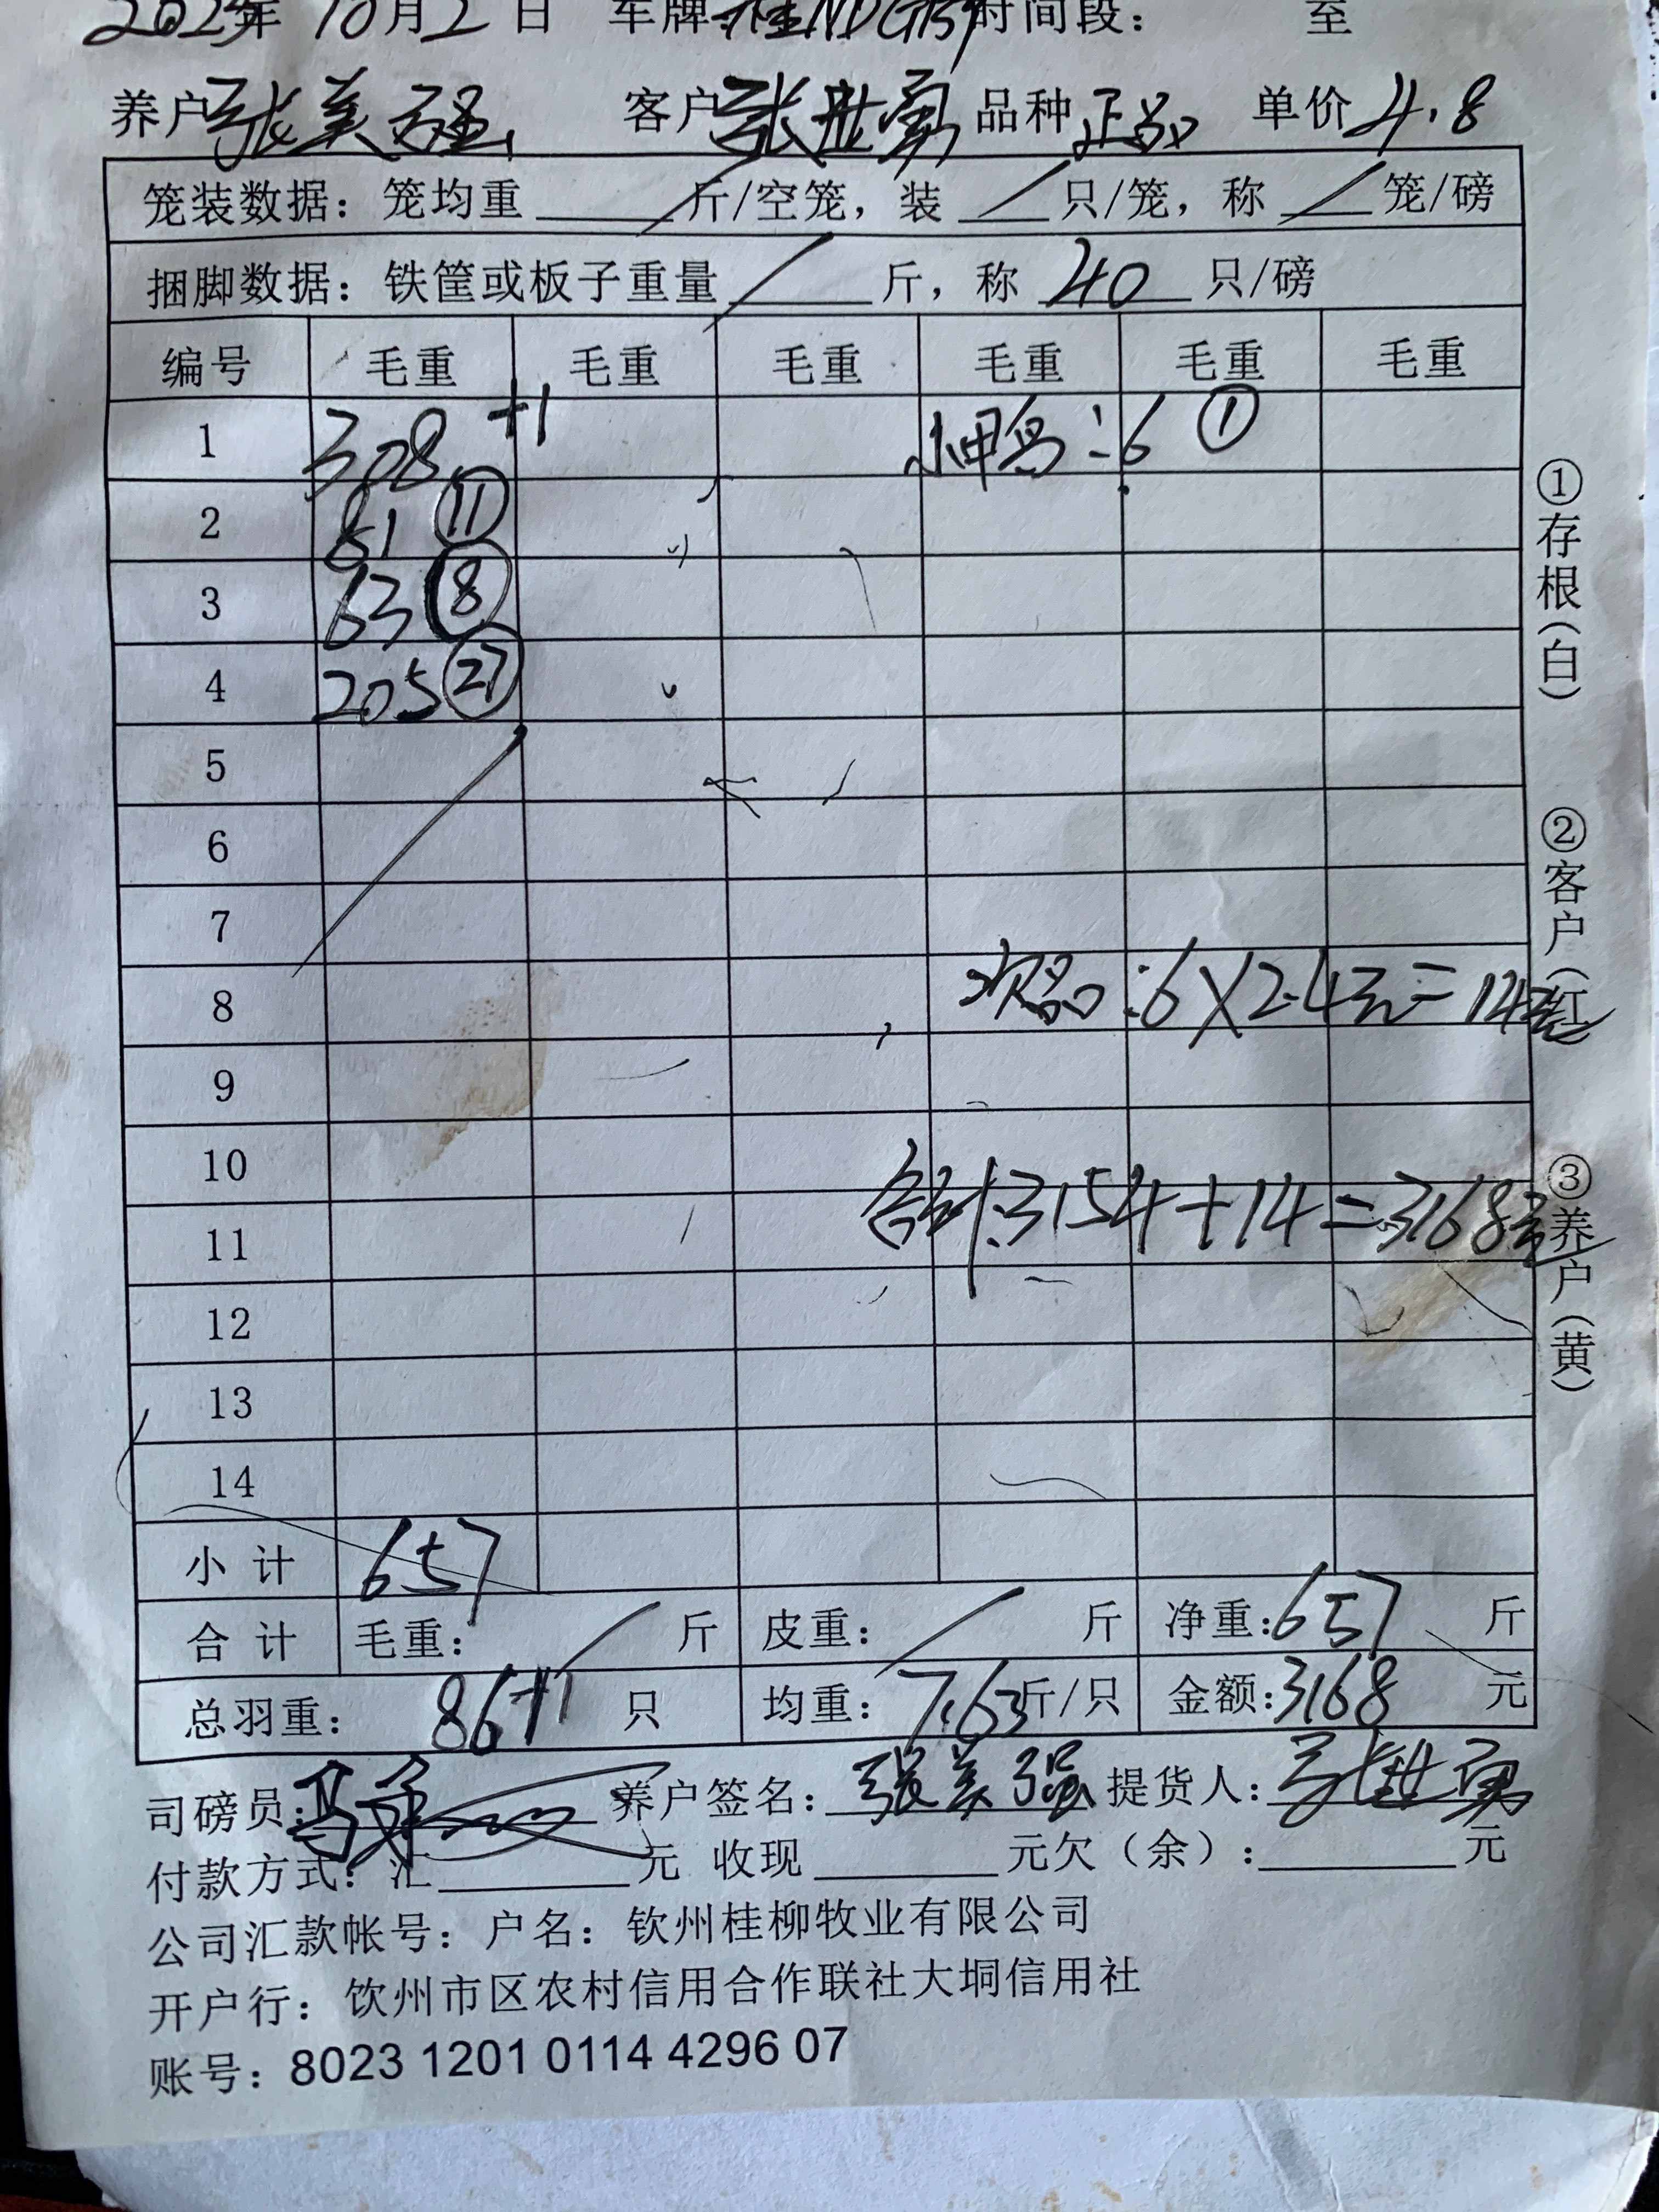 2025年 10月2日 车牌:桂NDG 时间段: 至
养户 张美强 客户 张世勇 品种 正品 单价 4.8
笼装数据: 笼均重 / 斤/空笼, 装 / 只/笼, 称 / 笼/磅
捆脚数据: 铁筐或板子重量 / 斤, 称 40 只/磅
编号 毛重 毛重 毛重 毛重 毛重 毛重
1 308 +1 小鸭:6 ①
2 81 ⑪
3 63 ⑧
4 205 ㉗
5
6
7
8 次品:6×2.4元=14元
9
10
11 合计:3154+14=3168元
12
13
14
小计 657
合计 毛重: / 斤 皮重: / 斤 净重:657 斤
总羽重: 86+1 只 均重: 7.63斤/只 金额:3168 元
司磅员: 养户签名: 张美强 提货人: 张世勇
付款方式: 汇 元 收现 元欠(余): 元
公司汇款帐号: 户名: 钦州桂柳牧业有限公司
开户行: 钦州市区农村信用合作联社大垌信用社
账号: 8023 1201 0114 4296 07
①存根(白)
②客户(红)
③养户(黄)